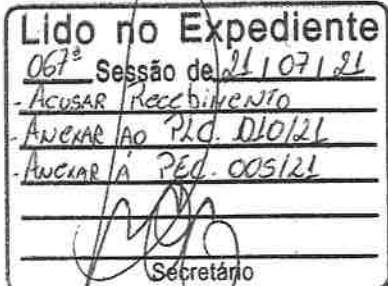 Lido no Expediente
067ª Sessão de 21 / 07 / 21
- ACUSAR RecebiMENTO
- ANEXAR AO PLC. 010/21
- ANEXAR À PEC. 005/21
Secretário